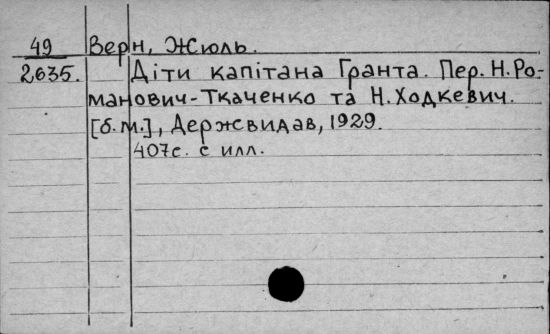 49 Верн, Жюль.
2635. Діти капітана Гранта. Пер. Н. Ро-
манович-Ткаченко та Н. Ходкевич.
[б.м.], Держвидав, 1929.
407с. с илл.